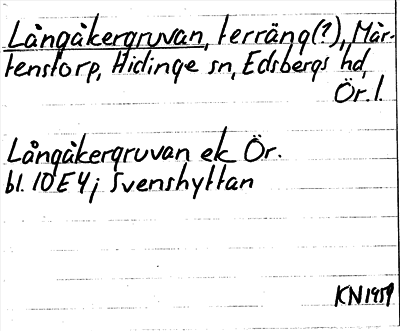 Långåkergruvan, terräng(?), Mår-
tenstorp, Hidinge sn, Edsbergs hd,
Ör. l.
Långåkergruvan ek Ör.
bl. 10E4j Svenshyttan
KN 1959